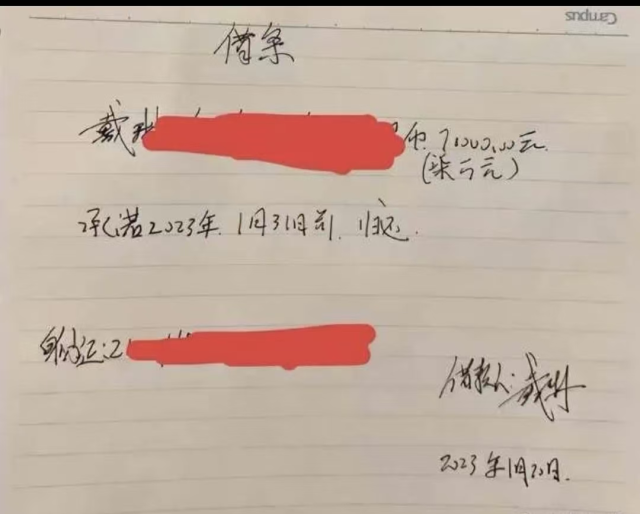 Campus
借条
戴琳 币 70000.00元.
(柒万元)
承诺2023年 1月31日前, 归还.
身份证:
借款人: 戴琳
2023年1月20日.